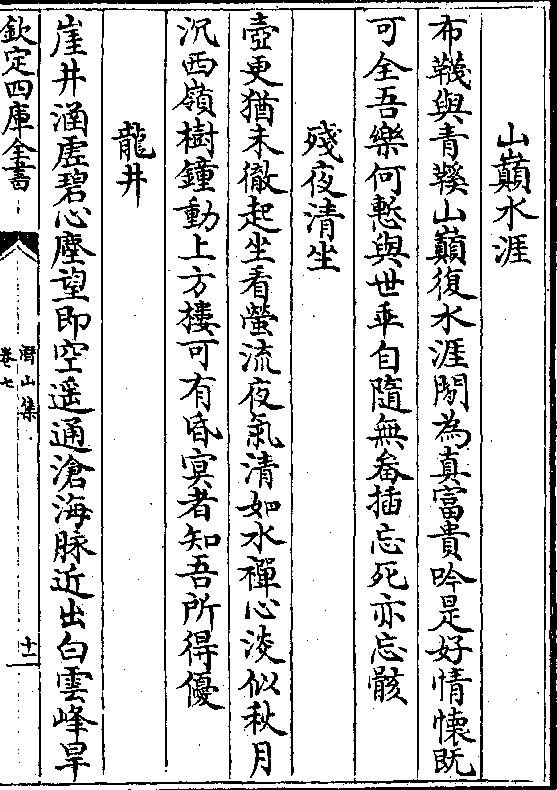 山巔水涯
布韈與青鞵山巔復水涯閒為真富貴吟是好情懷既
可全吾樂何慙與世乖自隨無畚插忘死亦忘骸
殘夜清坐
壺更猶未徹起坐看螢流夜氣清如水禪心淡似秋月
沉西嶺樹鐘動上方樓可有昏冥者知吾所得優
龍井
崖井涵虛碧心塵望即空遥通滄海脉近出白雲峰旱
欽定四庫全書
潛山集
卷七
十一